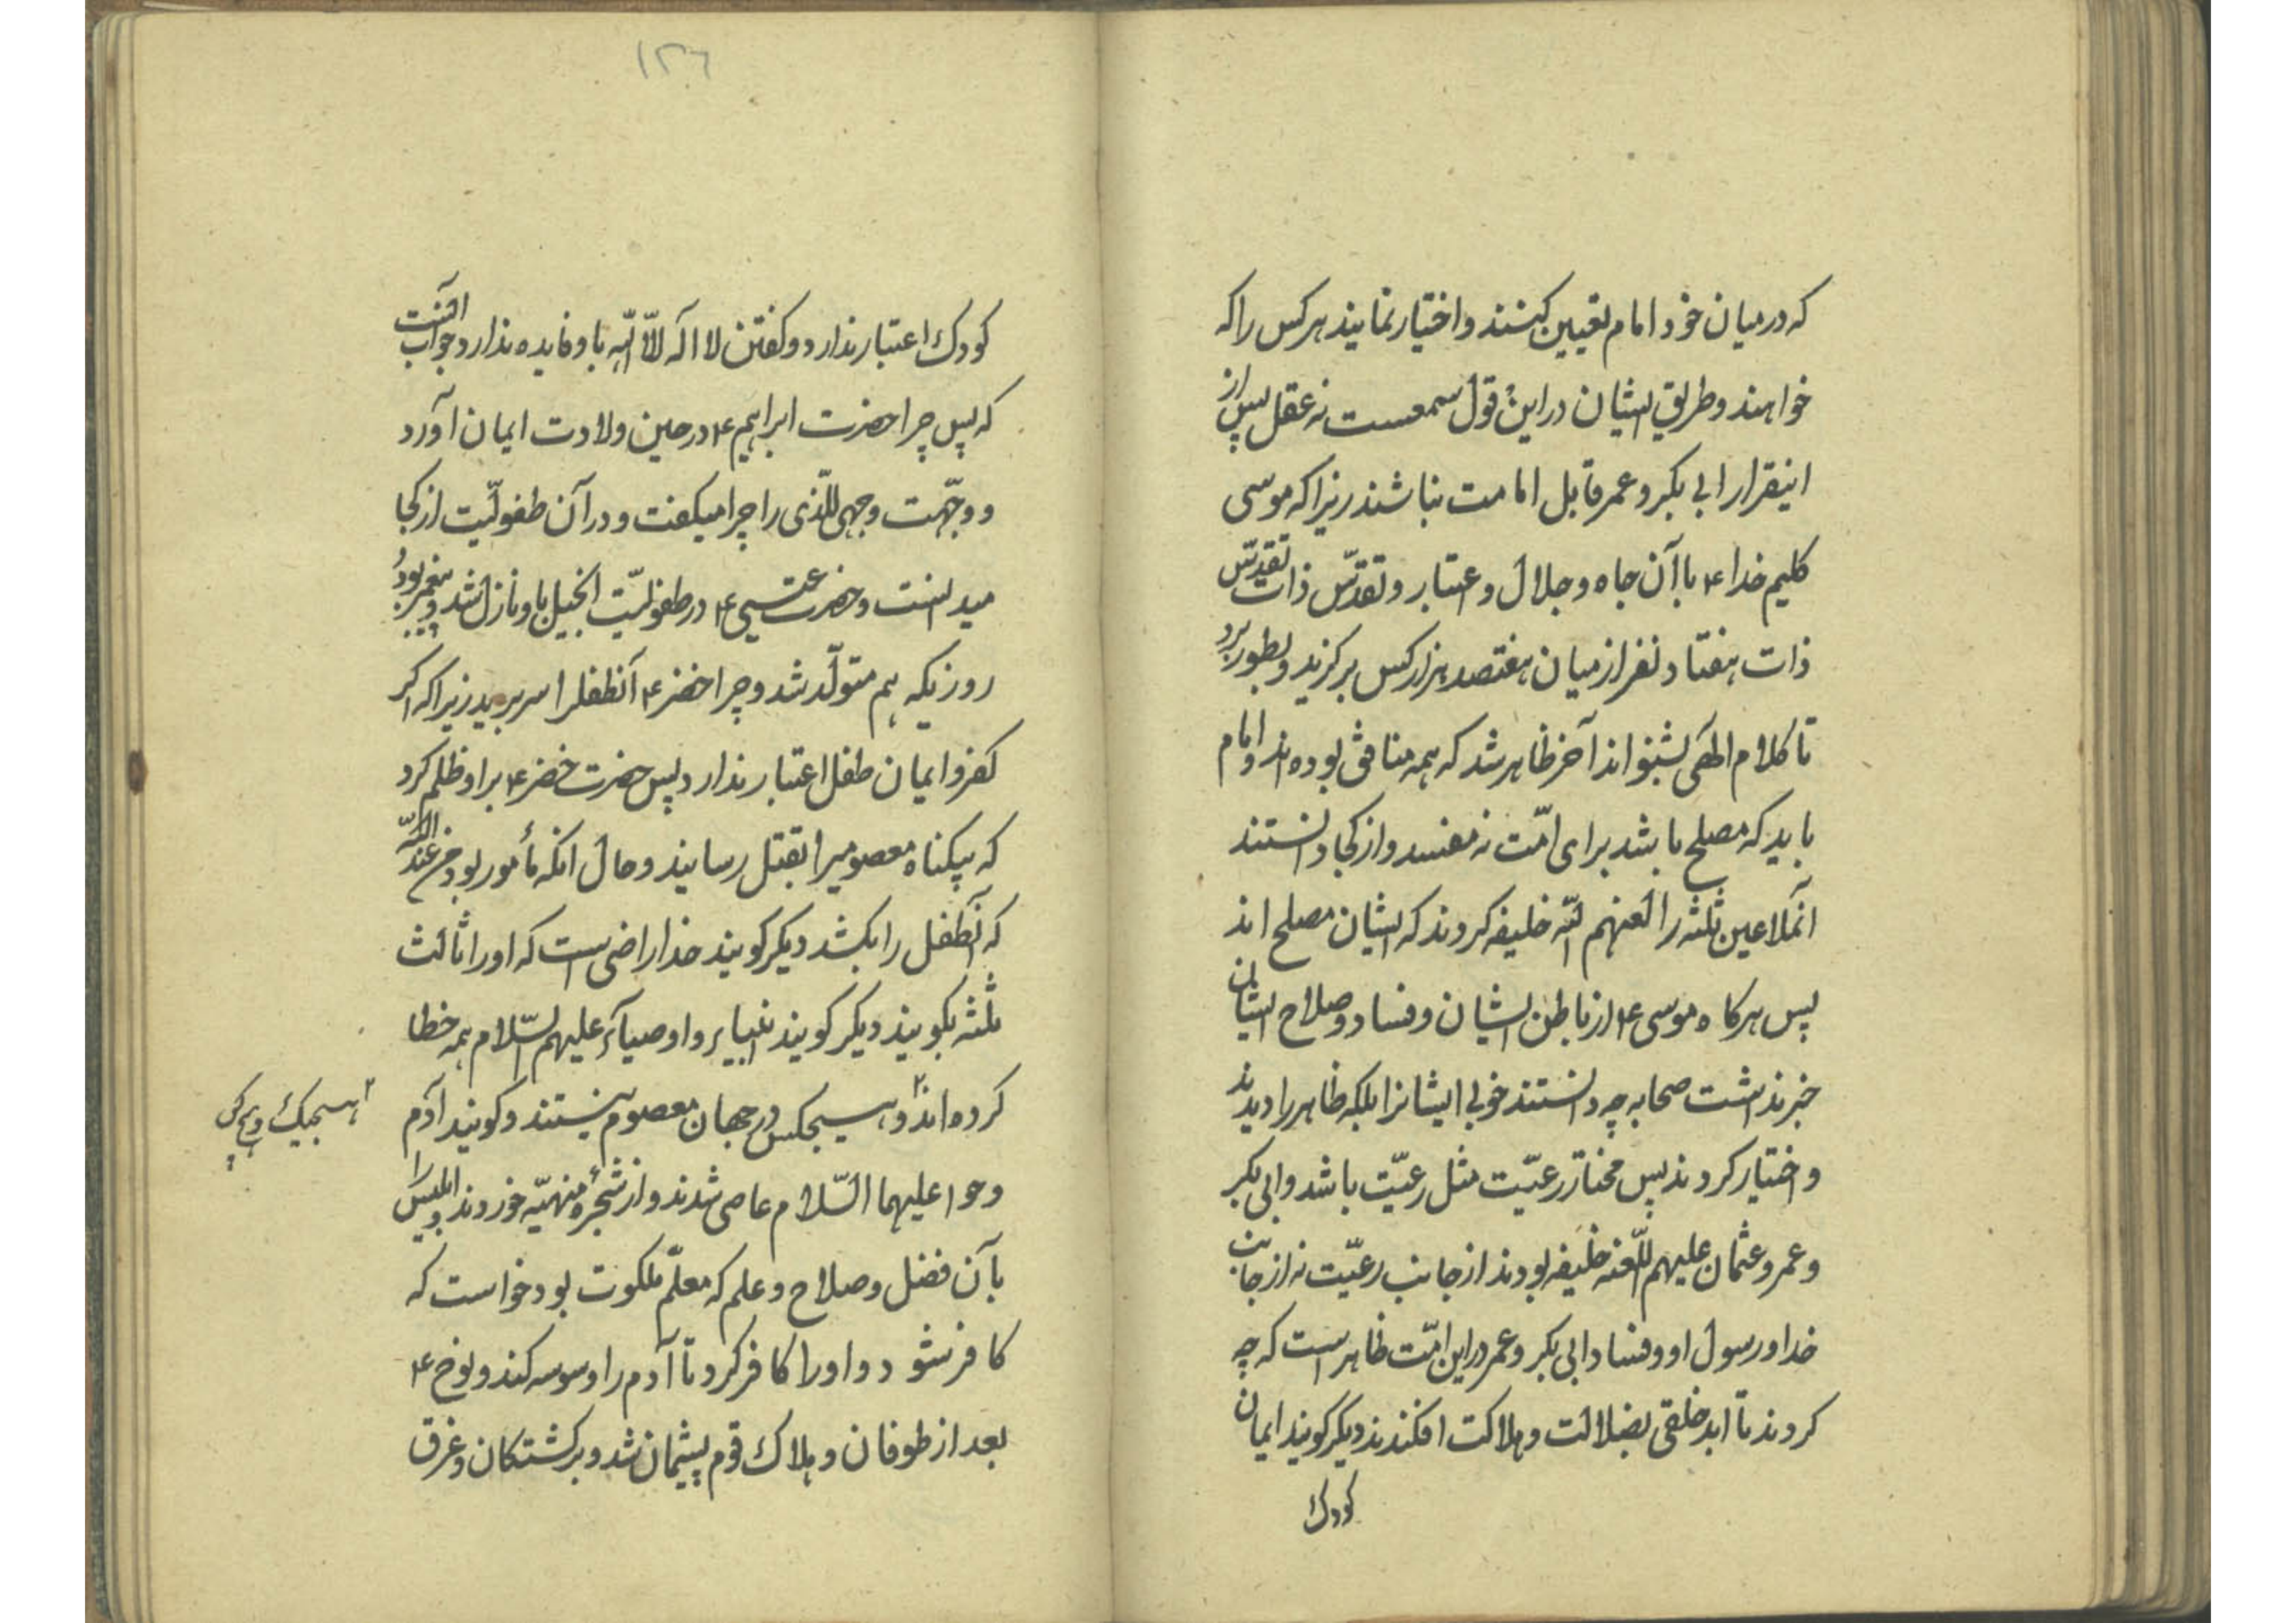 که در میان خود امام تعیین کنند و اختیار نمایند هر کس را که
خواهند و طریق ایشان در این قول سمعست نه عقل پس از
اینقرار ابی بکر و عمر قابل امامت نباشند زیرا که موسی
کلیم خدا ۴ با آن جاه و جلال و اعتبار و تقدّس ذات تقدّس
ذات هفتاد نفر از میان هفتصد هزار کس برگزید و بطور برد
تا کلام الهی بشنواند آخر ظاهر شد که همه منافق بوده‌اند و امام
باید که مصلح باشد برای امّت نه مفسد و از کجا دانستند
آنملاعین ثلثه را لعنهم اللّه خلیفه کردند که ایشان مصلح اند
پس هرکاه موسی ۴ از باطن ایشان و فساد و صلاح ایشان
خبر نداشت صحابه چه دانستند خوبی ایشانرا بلکه ظاهر را دیدند
و اختیار کردند پس مختار رعیّت مثل رعیّت باشد و ابی بکر
و عمر و عثمان علیهم اللّعنه خلیفه بودند از جانب رعیّت نه از جانب
خدا و رسول او و فساد ابی بکر و عمر در این امّت ظاهر است که چه
کردند تا ابد خلقی بضلالت و هلاکت افکندند دیکر کویند ایمان
کودک
۱۳۶
کودک اعتبار ندارد و کفتن لا اله الّا اللّه باو فایده ندارد جواب آنست
که پس چرا حضرت ابراهیم ۴ در حین ولادت ایمان آورد
و وجّهت وجهی للّذی را چرا میکفت و در آن طفولیّت از کجا
میدانست و حضرت عیسی ۴ در طفولیّت انجیل باو نازل شد و پیغمبر بود
روزیکه هم متولّد شد و چرا خضر ۴ آنطفلرا سر برید زیرا که اکر
کفر و ایمان طفل اعتبار ندارد پس حضرت خضر ۴ بر او ظلم کرد
که بیکناه معصومیرا بقتل رسانید و حال انکه مأمور بود من عند اللّه
که آنطفل را بکشد دیکر کویند خدا راضی است که او را ثالث
ثلثه بکویند دیکر کویند انبیاء و اوصیاء علیهم السّلام همه خطا
کرده‌اند و هیچکس در جهان معصوم نیستند و کویند آدم
هیچیک
و حوا علیهما السّلام عاصی شدند و از شجرهٔ منهیّه خوردند و ابلیس را
بآن فضل و صلاح و علم که معلّم ملکوت بود خواست که
کافر شود و او را کافر کرد تا آدم را وسوسه کند و نوح ۴
بعد از طوفان و هلاک قوم پشیمان شد و برکشتکان و غرق